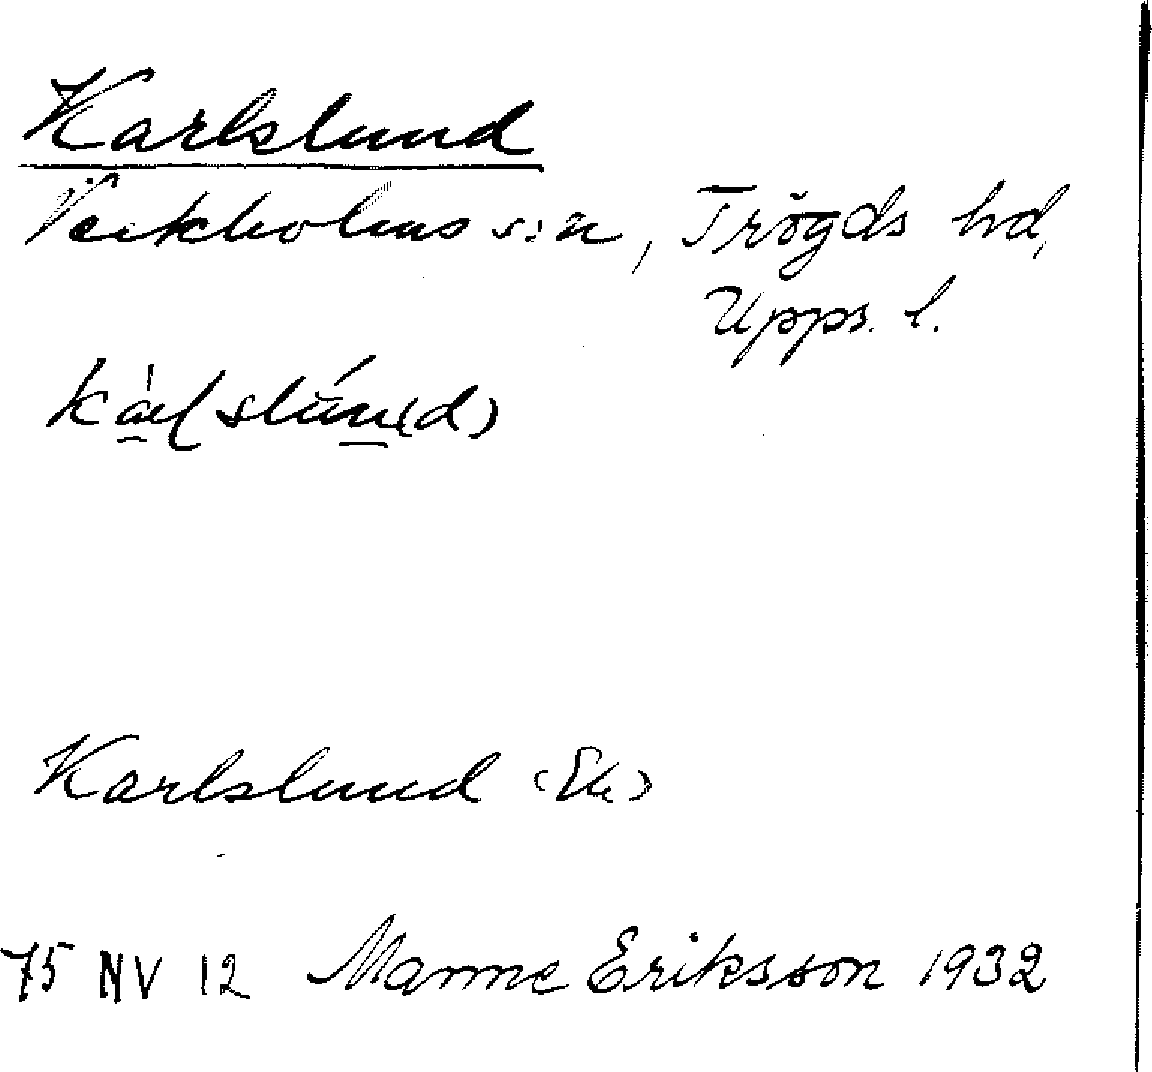 Karlslund
Veckholms s:n, Trögds hd,
Upps. l.
Karlslund (Ek)
75 NV 12 Manne Eriksson 1932